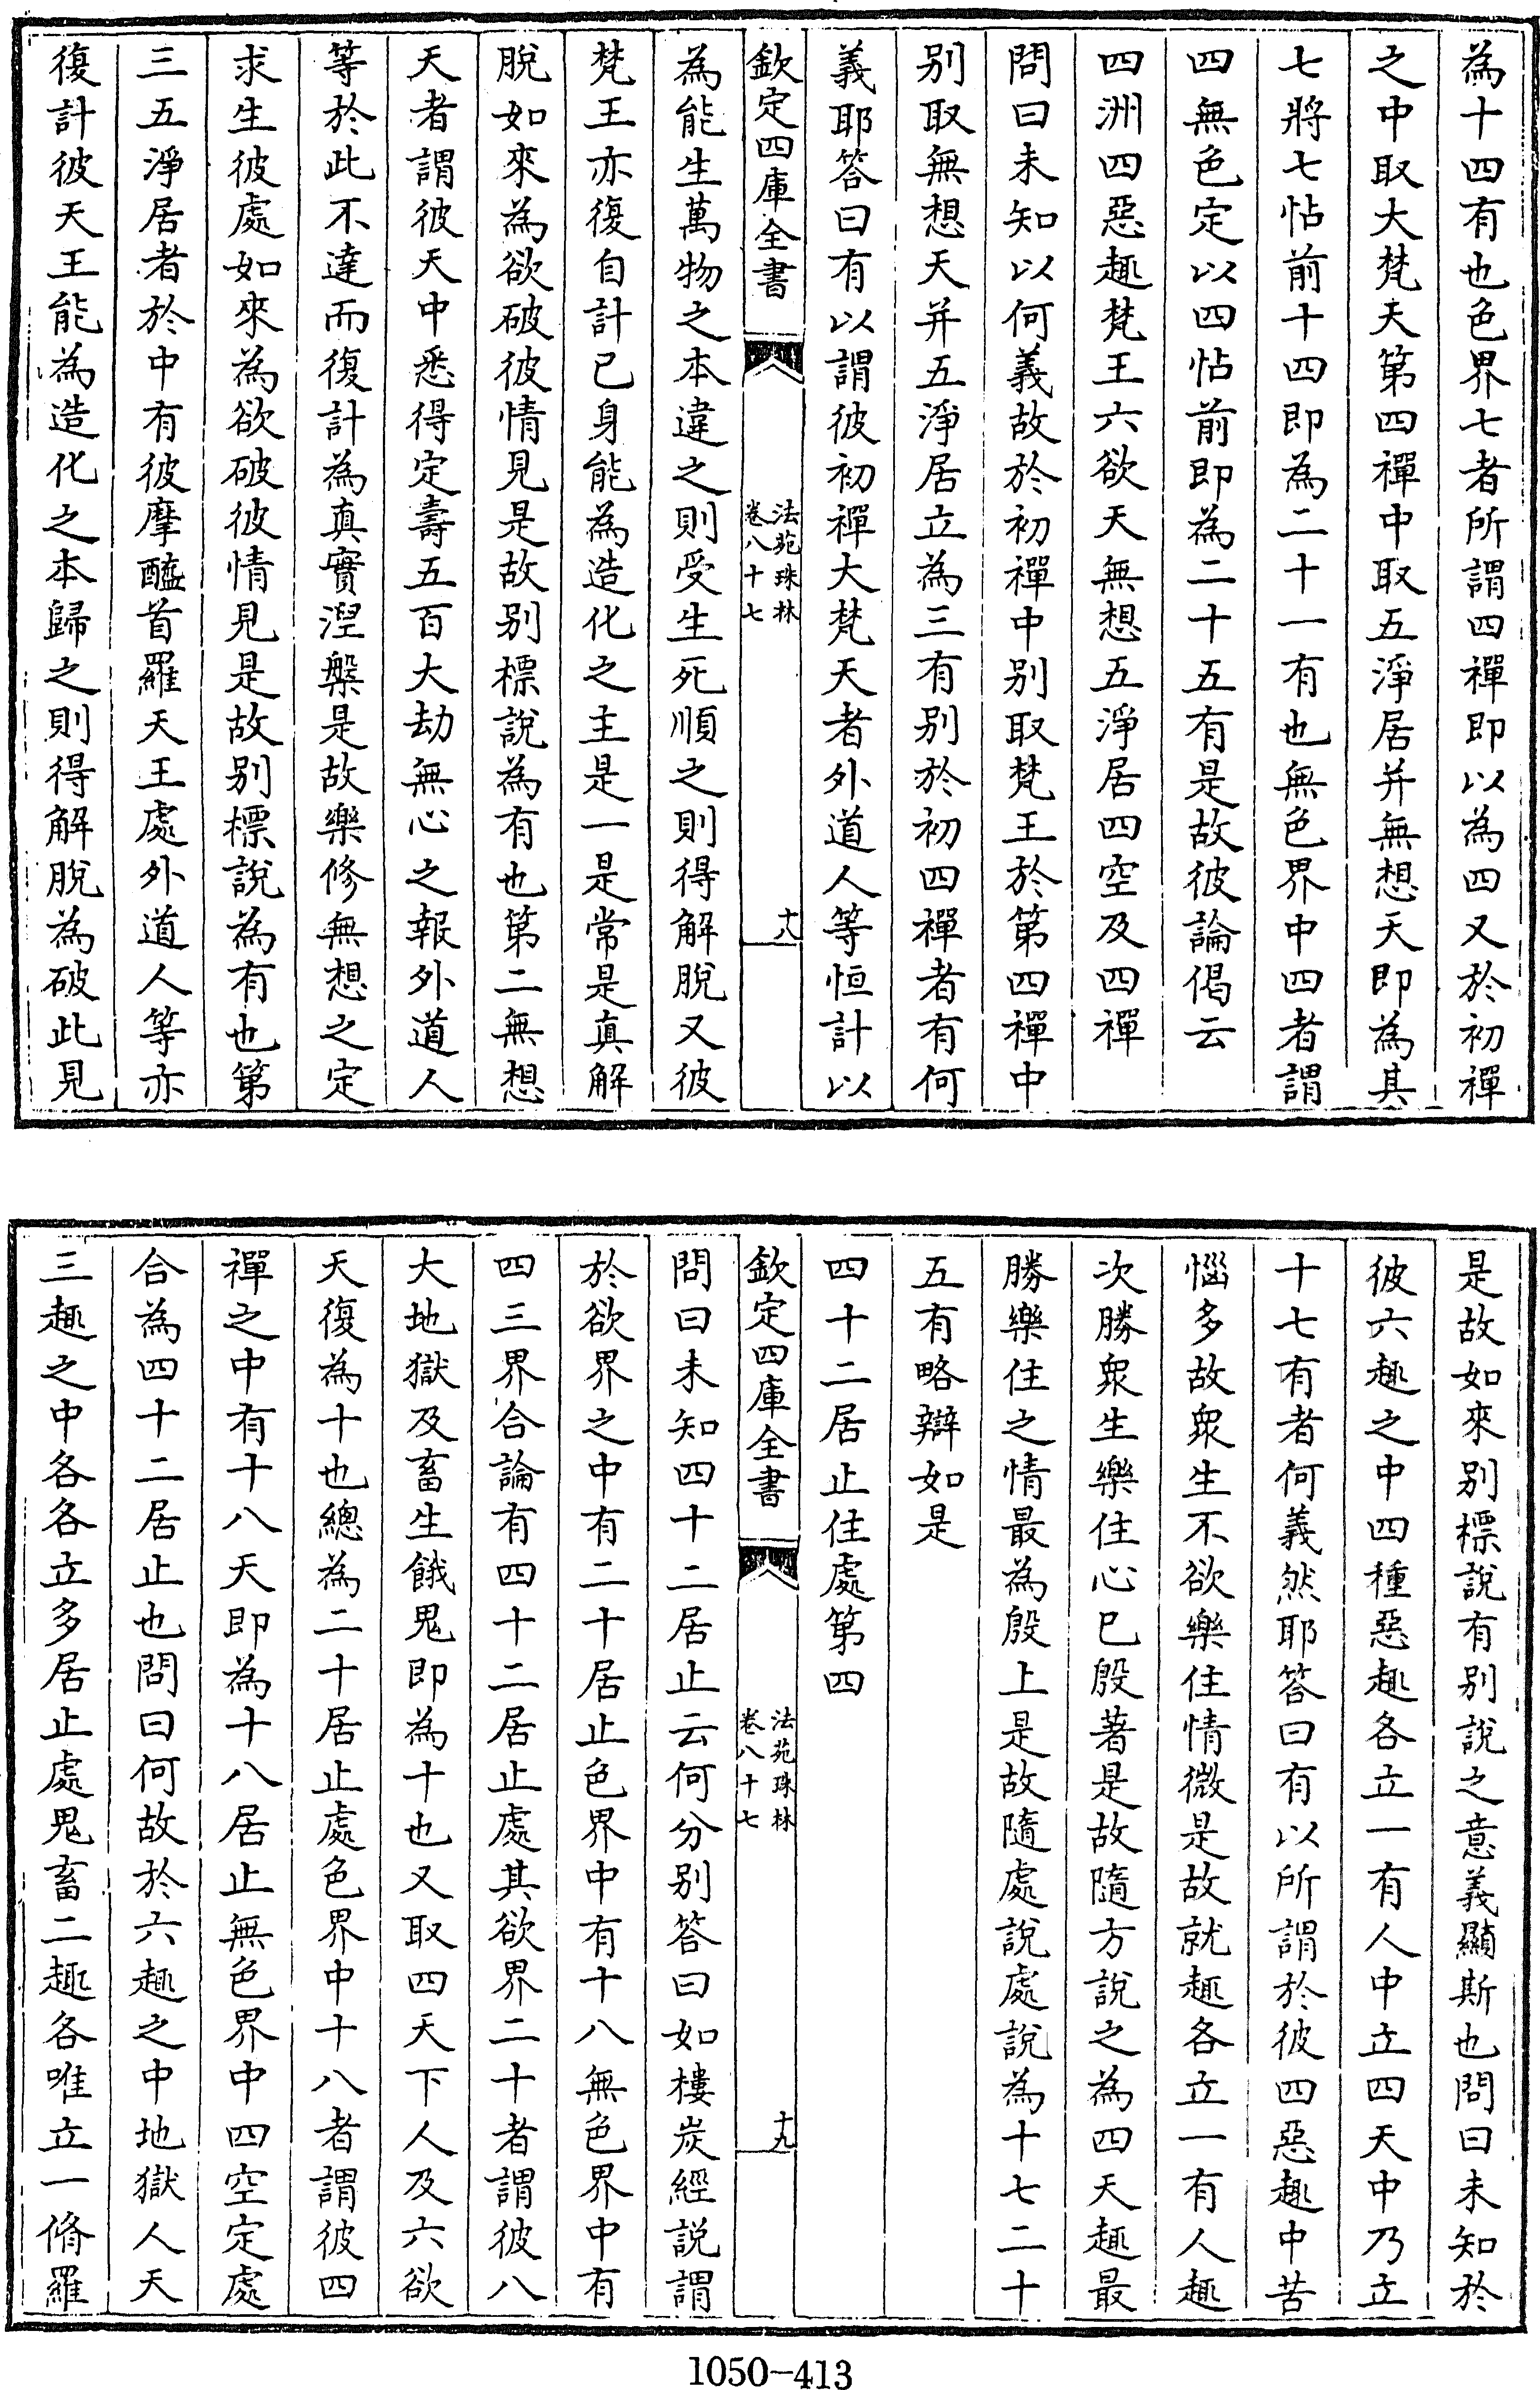 為十四有也色界七者所謂四禪即以為四又於初禪
之中取大梵天第四禪中取五淨居并無想天即為其
七將七帖前十四即為二十一有也無色界中四者謂
四無色定以四帖前即為二十五有是故彼論偈云
四洲四惡趣梵王六欲天無想五淨居四空及四禪
問曰未知以何義故於初禪中别取梵王於第四禪中
别取無想天并五淨居立為三有别於初四禪者有何
義耶答曰有以謂彼初禪大梵天者外道人等恒計以
欽定四庫全書
法苑珠林
卷八十七
十八
為能生萬物之本違之則受生死順之則得解脫又彼
梵王亦復自計已身能為造化之主是一是常是真解
脫如來為欲破彼情見是故别標說為有也第二無想
天者謂彼天中悉得定壽五百大劫無心之報外道人
等於此不達而復計為真實湼槃是故樂修無想之定
求生彼處如來為欲破彼情見是故别標說為有也第
三五淨居者於中有彼摩醯首羅天王處外道人等亦
復計彼天王能為造化之本歸之則得解脫為破此見
是故如來别標說有别說之意義顯斯也問曰未知於
彼六趣之中四種惡趣各立一有人中立四天中乃立
十七有者何義然耶答曰有以所謂於彼四惡趣中苦
惱多故衆生不欲樂住情微是故就趣各立一有人趣
次勝衆生樂住心已殷著是故隨方說之為四天趣最
勝樂住之情最為殷上是故隨處說處說為十七二十
五有略辯如是
四十二居止住處第四
欽定四庫全書
法苑珠林
卷八十七
十九
問曰未知四十二居止云何分别答曰如樓炭經說謂
於欲界之中有二十居止色界中有十八無色界中有
四三界合論有四十二居止處其欲界二十者謂彼八
大地獄及畜生餓鬼即為十也又取四天下人及六欲
天復為十也總為二十居止處色界中十八者謂彼四
禪之中有十八天即為十八居止無色界中四空定處
合為四十二居止也問曰何故於六趣之中地獄人天
三趣之中各各立多居止處鬼畜二趣各唯立一脩羅
1050-413